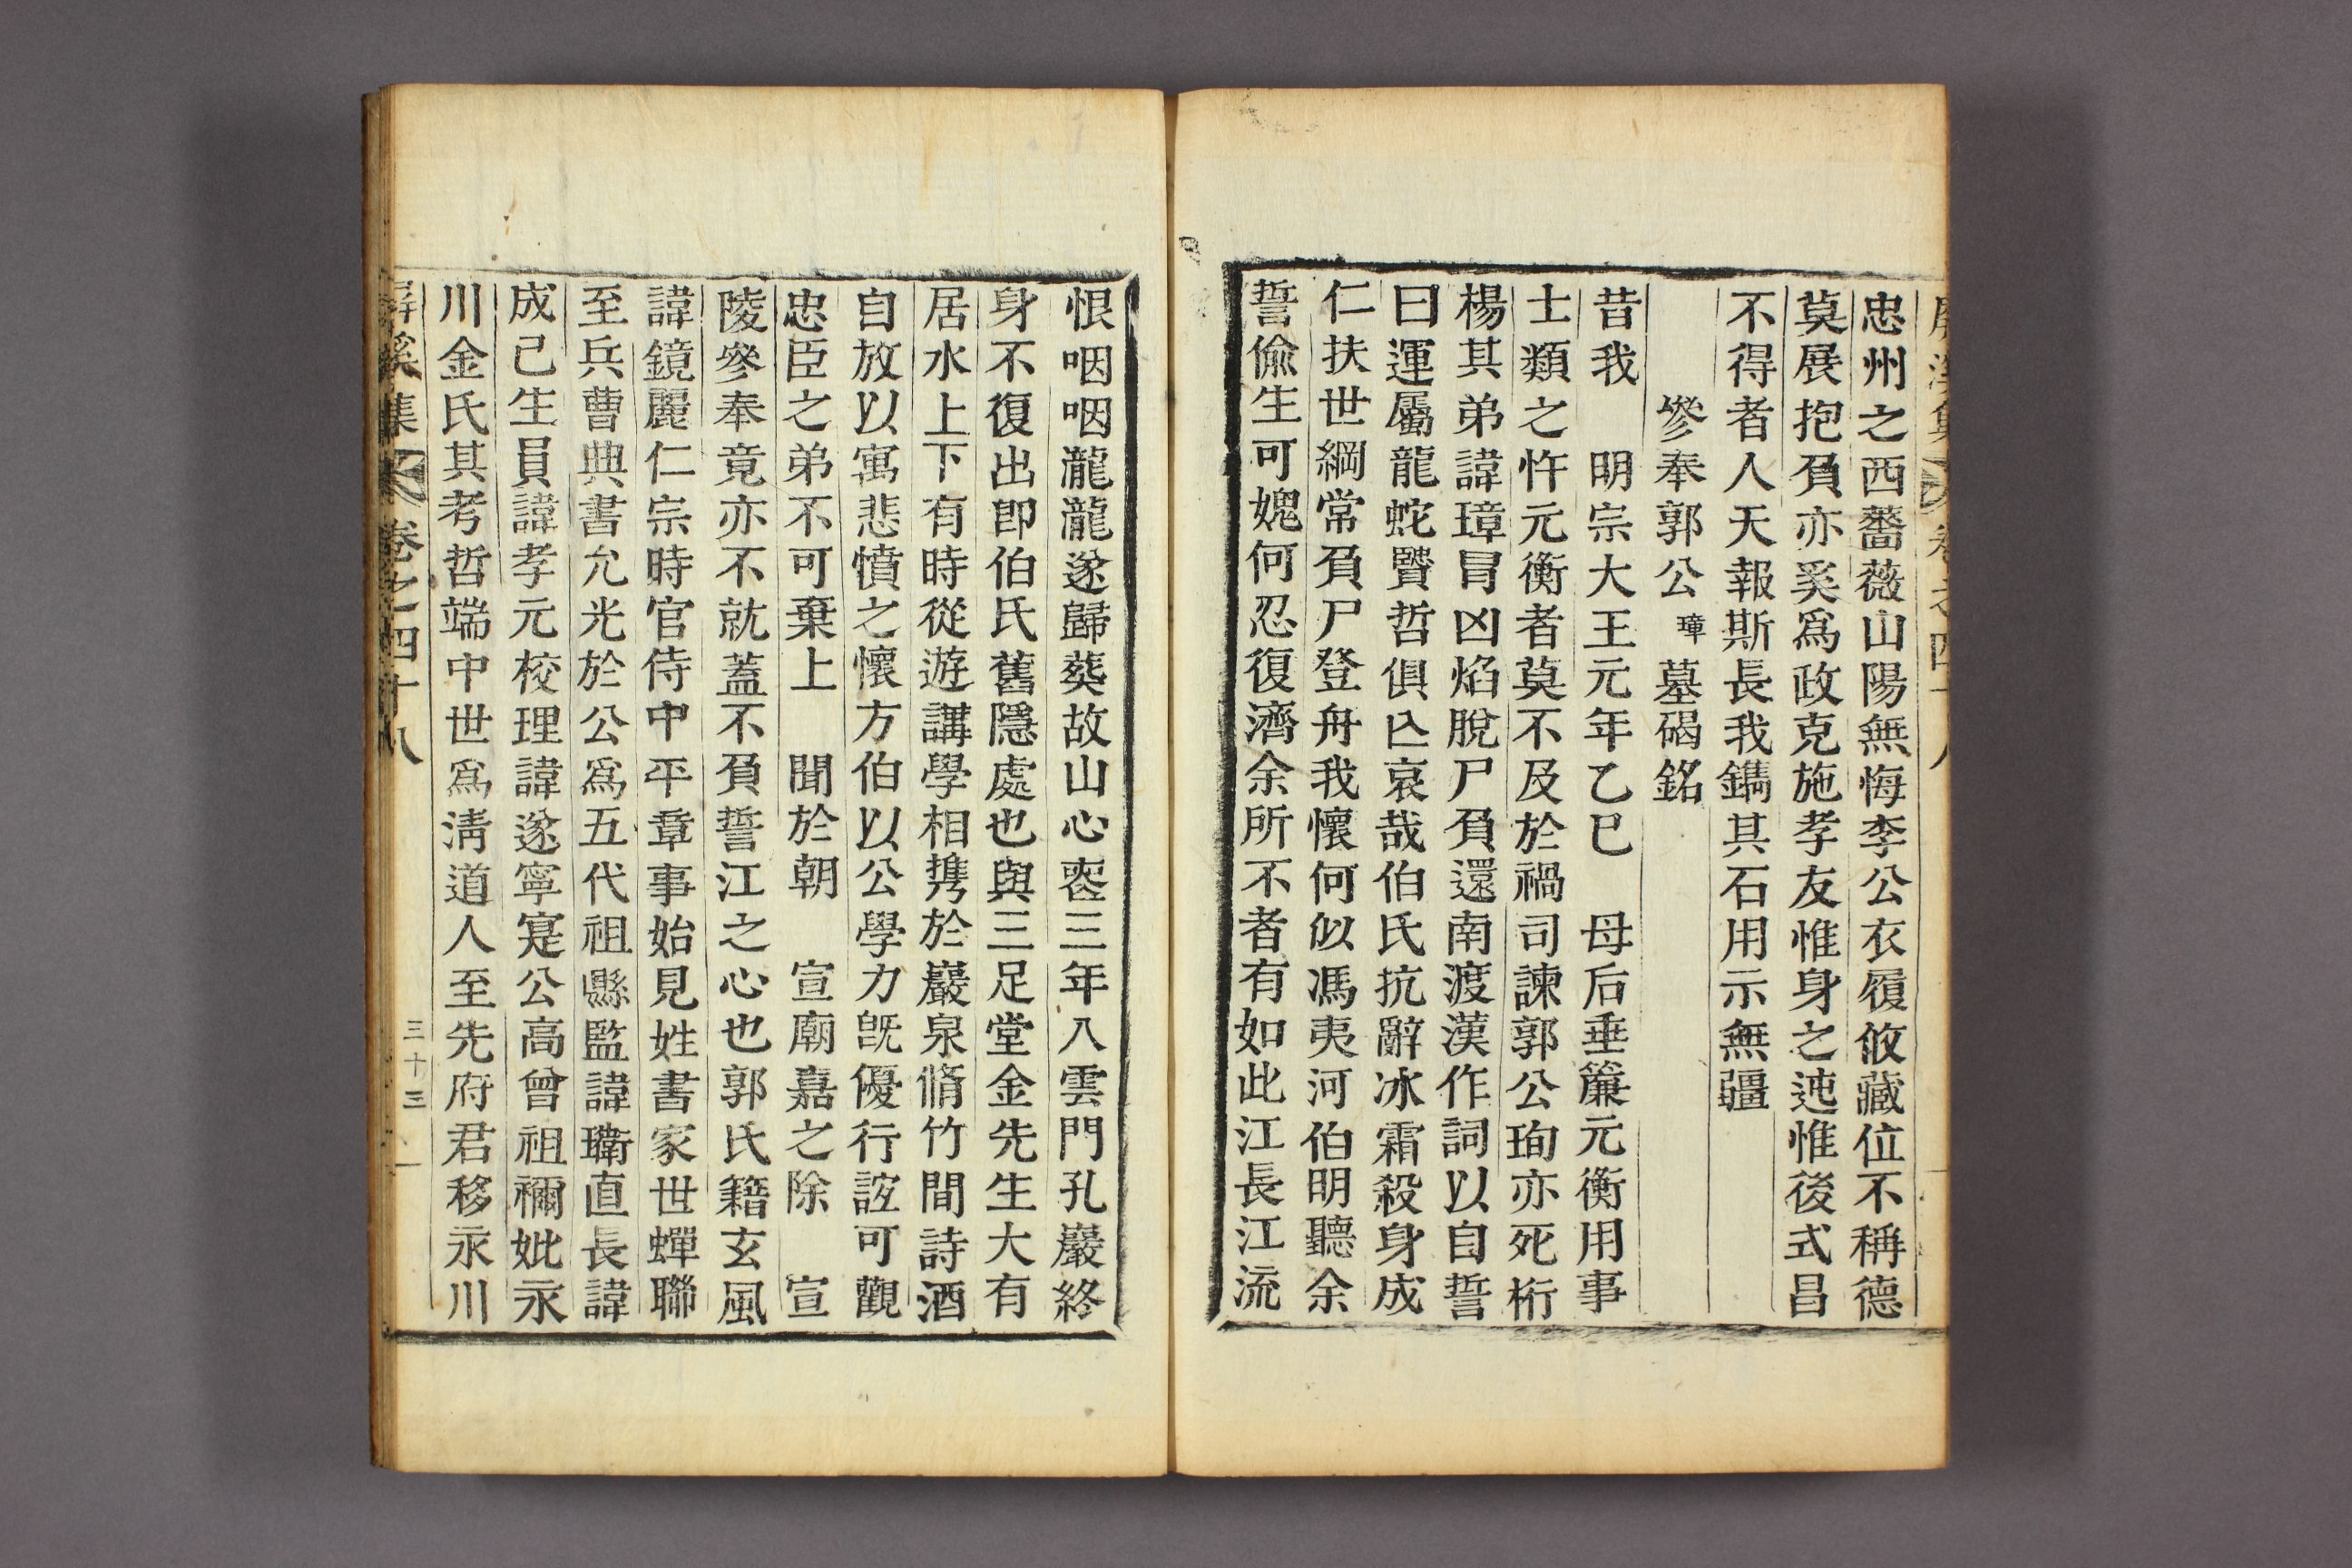 忠州之西薔薇山陽無悔李公衣履攸藏位不稱德
莫展抱負亦奚爲政克施孝友惟身之迍惟後式昌
不得者人天報斯長我鐫其石用示無疆
叅奉郭公璋墓碣銘
昔我　明宗大王元年乙巳　母后垂簾元衡用事
士類之忤元衡者莫不及於禍司諫郭公珣亦死桁
楊其弟諱璋冒凶焰脫尸負還南渡漢作詞以自誓
曰運屬龍蛇賢哲俱亾哀哉伯氏抗辭冰霜殺身成
仁扶世綱常負尸登舟我懷何似馮夷河伯明聽余
誓偸生可媿何忍復濟余所不者有如此江長江流
恨咽咽瀧瀧遂歸葬故山心喪三年入雲門孔巖終
身不復出卽伯氏舊隱處也與三足堂金先生大有
居水上下有時從遊講學相携於巖泉脩竹間詩酒
自放以寓悲憤之懷方伯以公學力旣優行誼可觀
忠臣之弟不可棄上　聞於朝　宣廟嘉之除　宣
陵參奉竟亦不就蓋不負誓江之心也郭氏籍玄風
諱鏡麗仁宗時官侍中平章事始見姓書家世蟬聯
至兵曹典書允光於公爲五代祖縣監諱瑋直長諱
成己生員諱孝元校理諱遂寧寔公高曾祖禰妣永
川金氏其考哲端中世爲淸道人至先府君移永川
屛溪集　卷之四十八　三十三